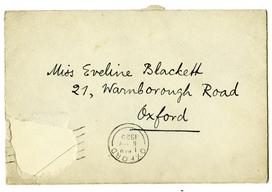 Miss Eveline Blackett
21, Warnborough Road
Oxford
OXFORD
1920